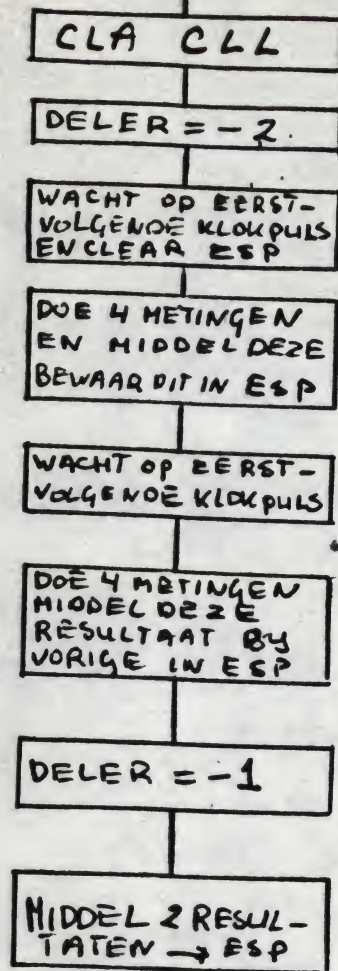 CLA CLL
DELER = -2.
WACHT OP EERST-
VOLGENDE KLOKPULS
EN CLEAR ESP
DOE 4 METINGEN
EN MIDDEL DEZE
BEWAAR DIT IN ESP
WACHT OP EERST-
VOLGENDE KLOKPULS
DOE 4 METINGEN
MIDDEL DEZE
RESULTAAT BY
VORIGE IN ESP
DELER = -1
MIDDEL 2 RESUL-
TATEN → ESP